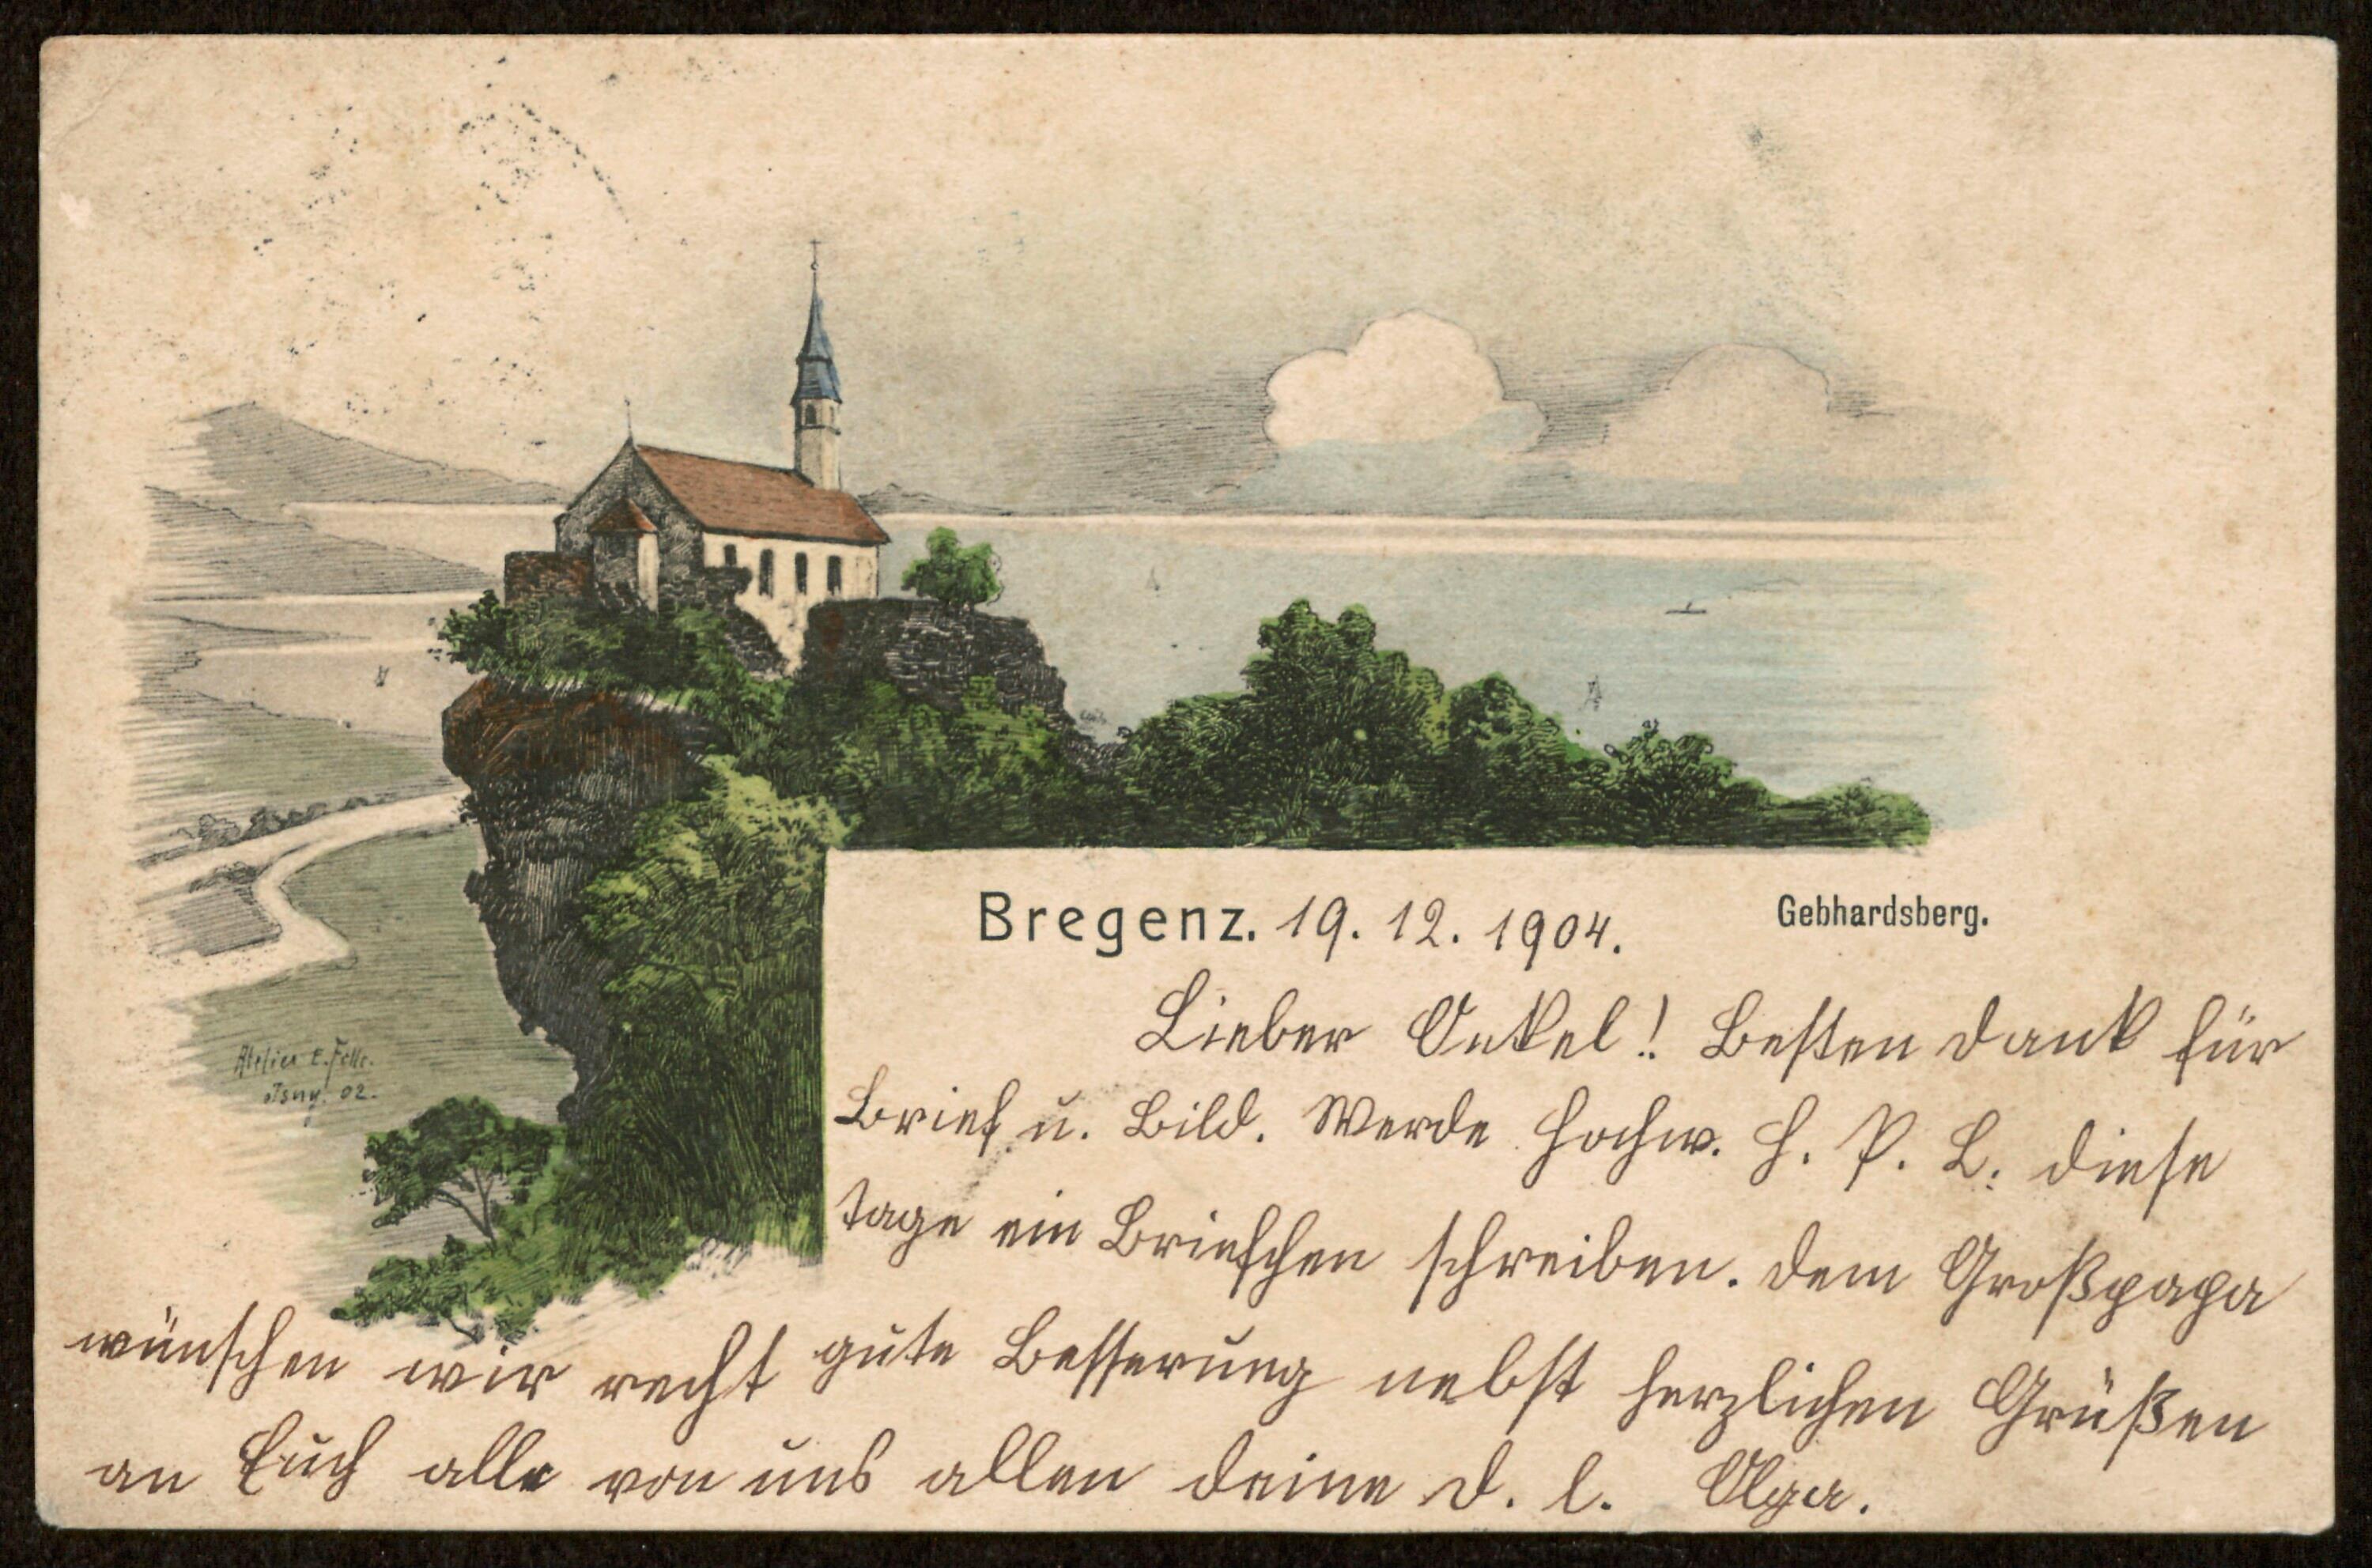 Bregenz. 19. 12. 1904. Gebhardsberg.
Lieber Onkel! Besten Dank für
Brief u. Bild. Werde Hochw. H. P. L. diese
Tage ein Briefchen schreiben. Dem Großpapa
wünschen wir recht gute Besserung nebst herzlichen Grüßen
an Euch alle von uns allen Deine D. l. Olga.
Atelier E. Felle.
Isny. 02.